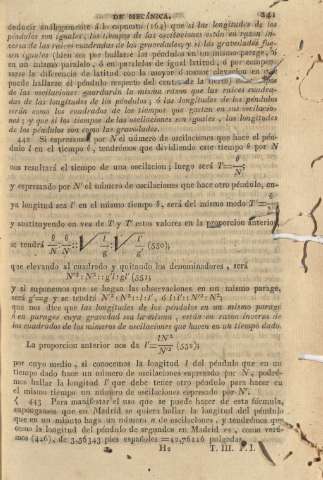 DE MECÁNICA. 241
deducir análogamente á lo expuesto (164) que si las longitudes de los
péndulos son iguales, los tiempos de las oscilaciones están en razon in-
versa de las raices cuadradas de las gravedades; y si las gravedades fue-
sen iguales (bien sea por hallarse los péndulos en un mismo parage, ó
en un mismo paralelo, ó en paralelos de igual latitud, ó por compen-
sarse la diferencia de latitud con la mayor ó menor
puede hallarse el péndulo respecto del centro de la tierra)
de las oscilaciones guardarán la misma razon que las raices cuadra-
das de las longitudes de los péndulos; ó las longitudes de los péndulos
serán como los cuadrados de los tiempos que gasten en sus oscilacio-
nes; y que si los tiempos de las oscilaciones son iguales, las longitudes
de los péndulos son como las gravedades.
442 Si expresamos por N el número de oscilaciones que hace el pén-
dulo l en el tiempo θ, tendrémos que dividiendo este tiempo θ por N
nos resultará el tiempo de una oscilacion; luego será T=θ/N;
y expresando por N' el número de oscilaciones que hace otro péndulo, cu-
ya longitud sea l' en el mismo tiempo θ, será del mismo modo T'=
y sustituyendo en vez de T y T' estos valores en la proporcion anterior
se tendrá θ/N : θ/N' :: √l/g : √l'/g' (550),
que elevando al cuadrado y quitando los denominadores, será
N'²:N²::g'l:gl' (551);
y si suponemos que se hagan las observaciones en un mismo parage,
será g'=g y se tendrá N'²:N²::l:l', ó l:l'::N'²:N²;
que nos dice que las longitudes de los péndulos en un mismo parage
ó en parages cuya gravedad sea la misma, están en razon inversa de
los cuadrados de los números de oscilaciones que hacen en un tiempo dado.
La proporcion anterior nos da l'=lN²/N'² (552);
por cuyo medio, si conocemos la longitud l del péndulo que en un
tiempo dado hace un número de oscilaciones expresado por N, podré-
mos hallar la longitud l' que debe tener otro péndulo para hacer en
el mismo tiempo un número de oscilaciones expresado por N'.
443 Para manifestar el uso que se puede hacer de esta fórmula,
supongamos que en Madrid se quiera hallar la longitud del péndulo
que en un minuto haga un número n de oscilaciones, y tendrémos que
como la longitud del péndulo de segundos en Madrid es, como veré-
mos (426), de 3,56343 pies españoles =42,76116 pulgadas,
H2 T. III. P. I.